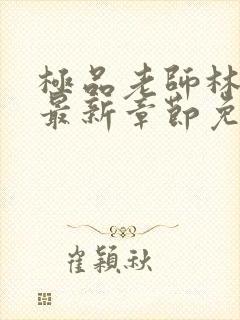 極品老師林
最新章節免
崔穎秋